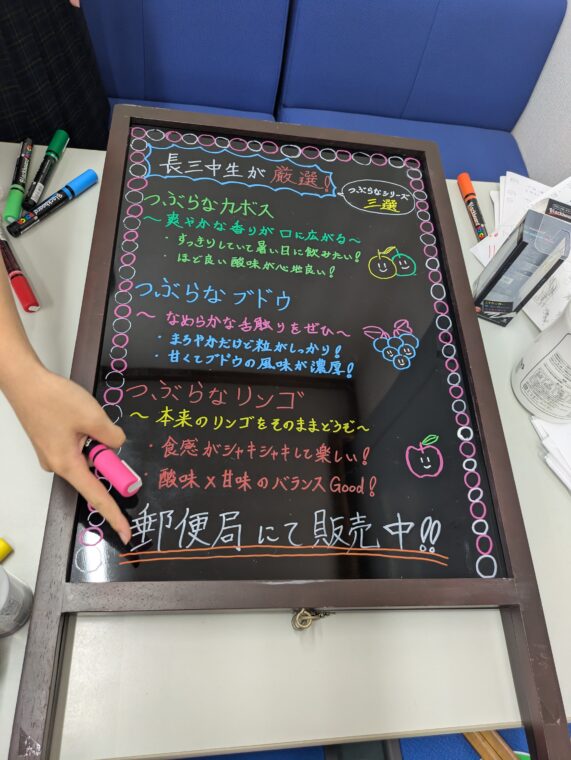 長三中生が 厳選!
つぶらなシリーズ
三選
つぶらなカボス
〜爽やかな香りが口に広がる〜
・すっきりしていて暑い日に飲みたい!
・ほど良い酸味が心地良い!
つぶらなブドウ
〜なめらかな舌触りをぜひ〜
・まろやかだけど粒がしっかり!
・甘くてブドウの風味が濃厚!
つぶらなリンゴ
〜本来のリンゴをそのままどうぞ〜
・食感がシャキシャキして楽しい!
・酸味×甘味のバランスGood!
郵便局にて販売中!!